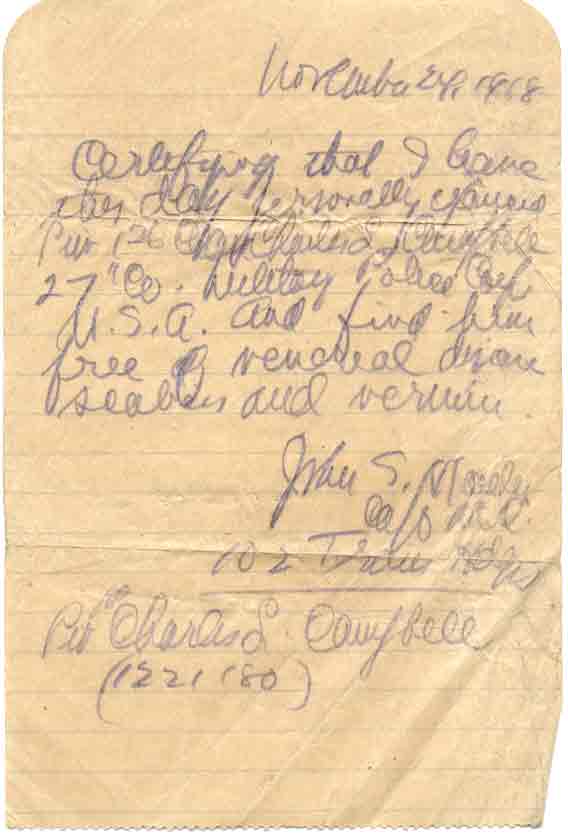 November 24, 1918
Certifying that I have
this day personally examined
Pvt Charles L Campbell
27" Co. Military Police Corp
U.S.A. and find him
free of venereal disease
scabies and vermin
John S.
102 Trains Hdqs
Pvt Charles L. Campbell
(1221180)